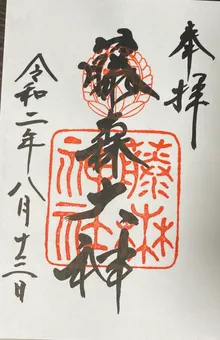 奉拝
藤森大神
藤森神社
令和二年八月十二日